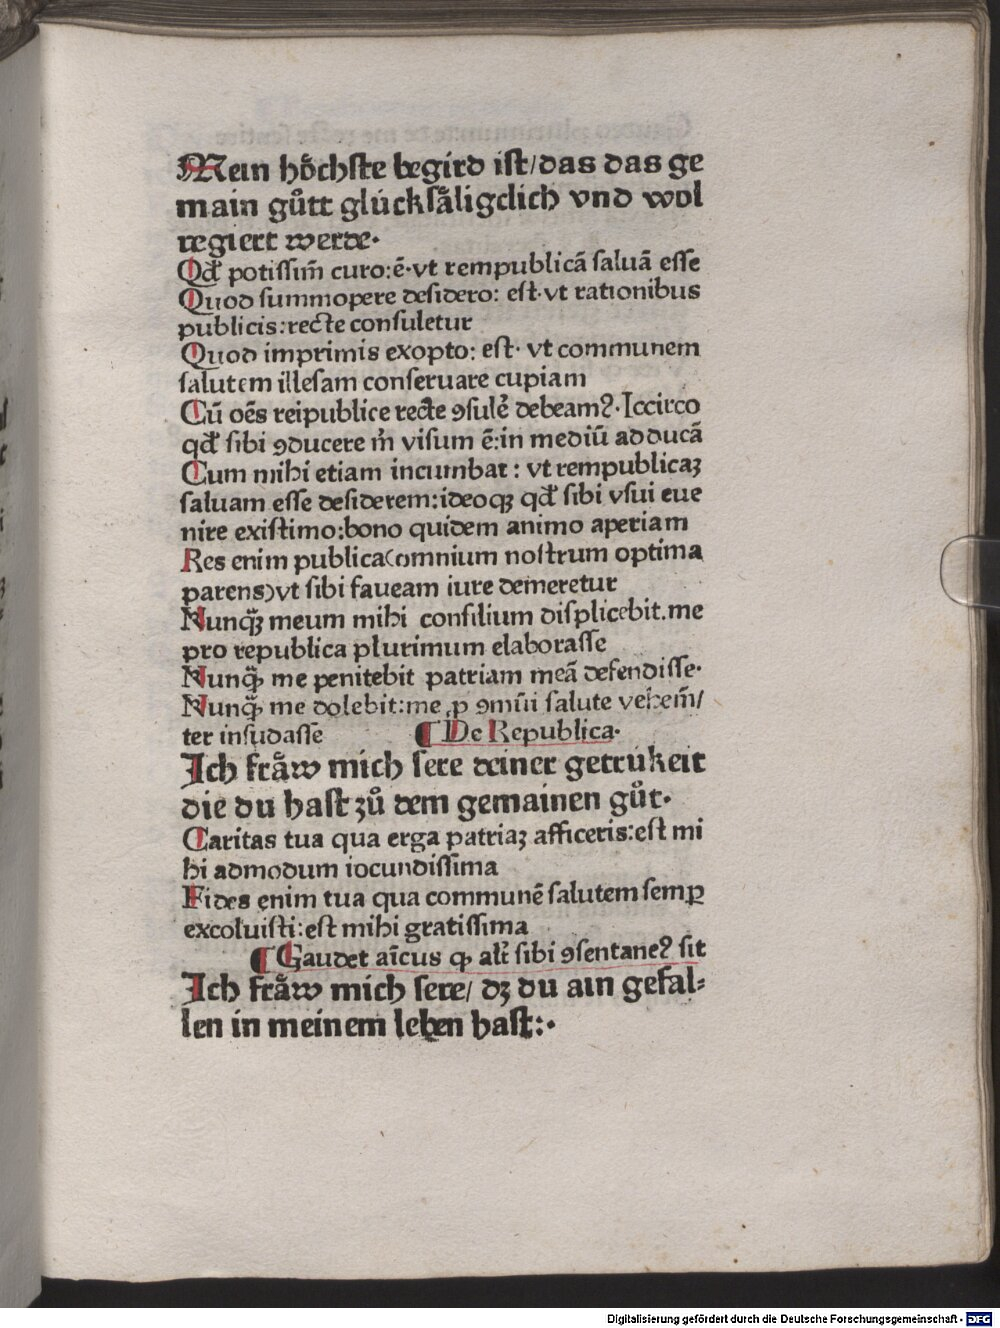 Mein hoͤchste begird ist/das das ge
main guͦtt glúcksaͤligclich vnd wol
regiert werde·
Qd̕ potissim̄ curo:ē·vt rempublicā saluā esse
Quod summopere desidero: est·vt rationibus
publicis:recte consuletur
Quod imprimis exopto: est· vt communem
salutem illesam conseruare cupiam
Cū oēs reipublice recte ꝯsulē debeamꝰ·Iccirco
qd̕ sibi ꝯducere m̄ visum ē:in mediū adducā
Cum mihi etiam incumbat : vt rempublicaꝫ
saluam esse desiderem:ideoqꝫ qd̕ sibi vsui eue
nire existimo:bono quidem animo aperiam
Res enim publica(omnium nostrum optima
parens)vt sibi faueam iure demeretur
Nunqꝫ̄ meum mihi consilium displicebit.me
pro republica plurimum elaborasse
Nunqꝫ̄ me penitebit patriam meā defendisse·
Nunqꝫ̄ me dolebit:me ꝓ ꝯmūi salute vehem̄/
ter insudasse ¶ De Republica·
Ich fraͤw mich sere deiner getrúkeit
die du hast zuͦ dem gemainen guͦt·
Caritas tua qua erga patriaꝫ afficeris:est mi
hi admodum iocundissima
Fides enim tua qua communē salutem semꝑ
excoluisti:est mihi gratissima
¶ Gaudet aīcus ꝙ alt̄ sibi ꝯsentaneꝰ sit
Ich fraͤw mich sere/ dꝫ du ain gefal⸗
len in meinem leben hast:·
Digitalisierung gefördert durch die Deutsche Forschungsgemeinschaft - DFG